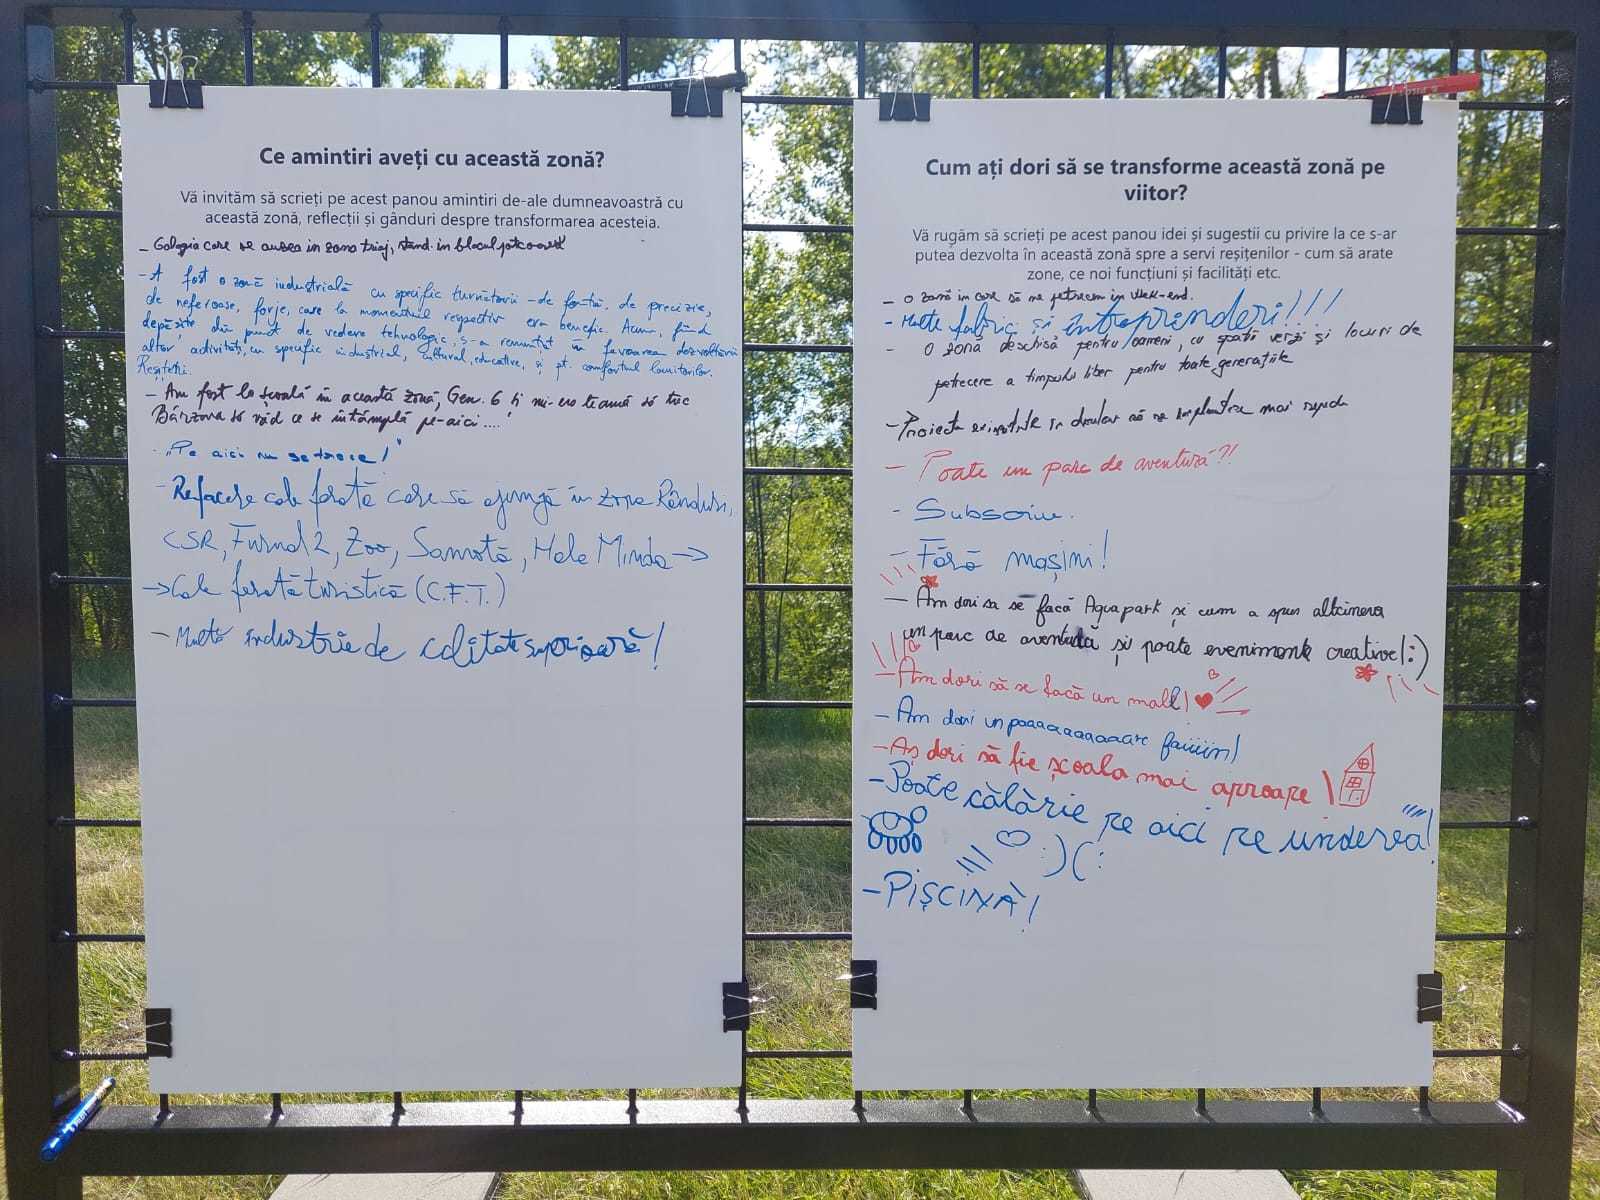 Ce amintiri aveți cu această zonă?
Vă invităm să scrieți pe acest panou amintiri de-ale dumneavoastră cu
această zonă, reflecții și gânduri despre transformarea acesteia.
- care se auzea in zona triaj, stand in blocul
- A fost o zonă industrială cu specific turnătorii - de fontă, de precizie,
de neferoase, forje, care la momentul respectiv era benefic. Acum, fiind
depășite din punct de vedere tehnologic, s-a renunțat în favoarea dezvoltării
altor activități, cu specific industrial, cultural, educative, și pt. comfortul locuitorilor
Reșiței.
- Am fost la școală în această zonă, Gen. 6 și mi-era teamă să trec
Bârzava să văd ce se întâmplă pe-aici ....!
- "Pe aici nu se trece!"
- Refacere cale ferată care să ajungă în zona Rânduri,
CSR, Furnal 2, Zoo, Hala Minda →
→ Cale ferată turistică (C.F.T.)
- Multă industrie de calitate superioară!
Cum ați dori să se transforme această zonă pe
viitor?
Vă rugăm să scrieți pe acest panou idei și sugestii cu privire la ce s-ar
putea dezvolta în această zonă spre a servi reșițenilor - cum să arate
zone, ce noi funcțiuni și facilități etc.
- o zonă in care să ne petrecem in week-end.
- Multe fabrici și întreprinderi!!!
- O zonă deschisă pentru oameni, cu spatii verzi și locuri de
petrecere a timpului liber pentru toate generațiile
- Proiecte existente în derulare să se implementeze mai repede
- Poate un parc de aventură?!
- Subscriu.
- Fără mașini!
- Am dori sa se facă Aquapark si cum a spus altcineva
un parc de aventură și poate evenimente creative! :)
- Am dori să se facă un mall!
- Am dori un paaaaaaaaaaarc faiiiin!
- Aș dori să fie școala mai aproape!
- Poate călărie pe aici pe undeva!
:)(:
- PIȘCINĂ!